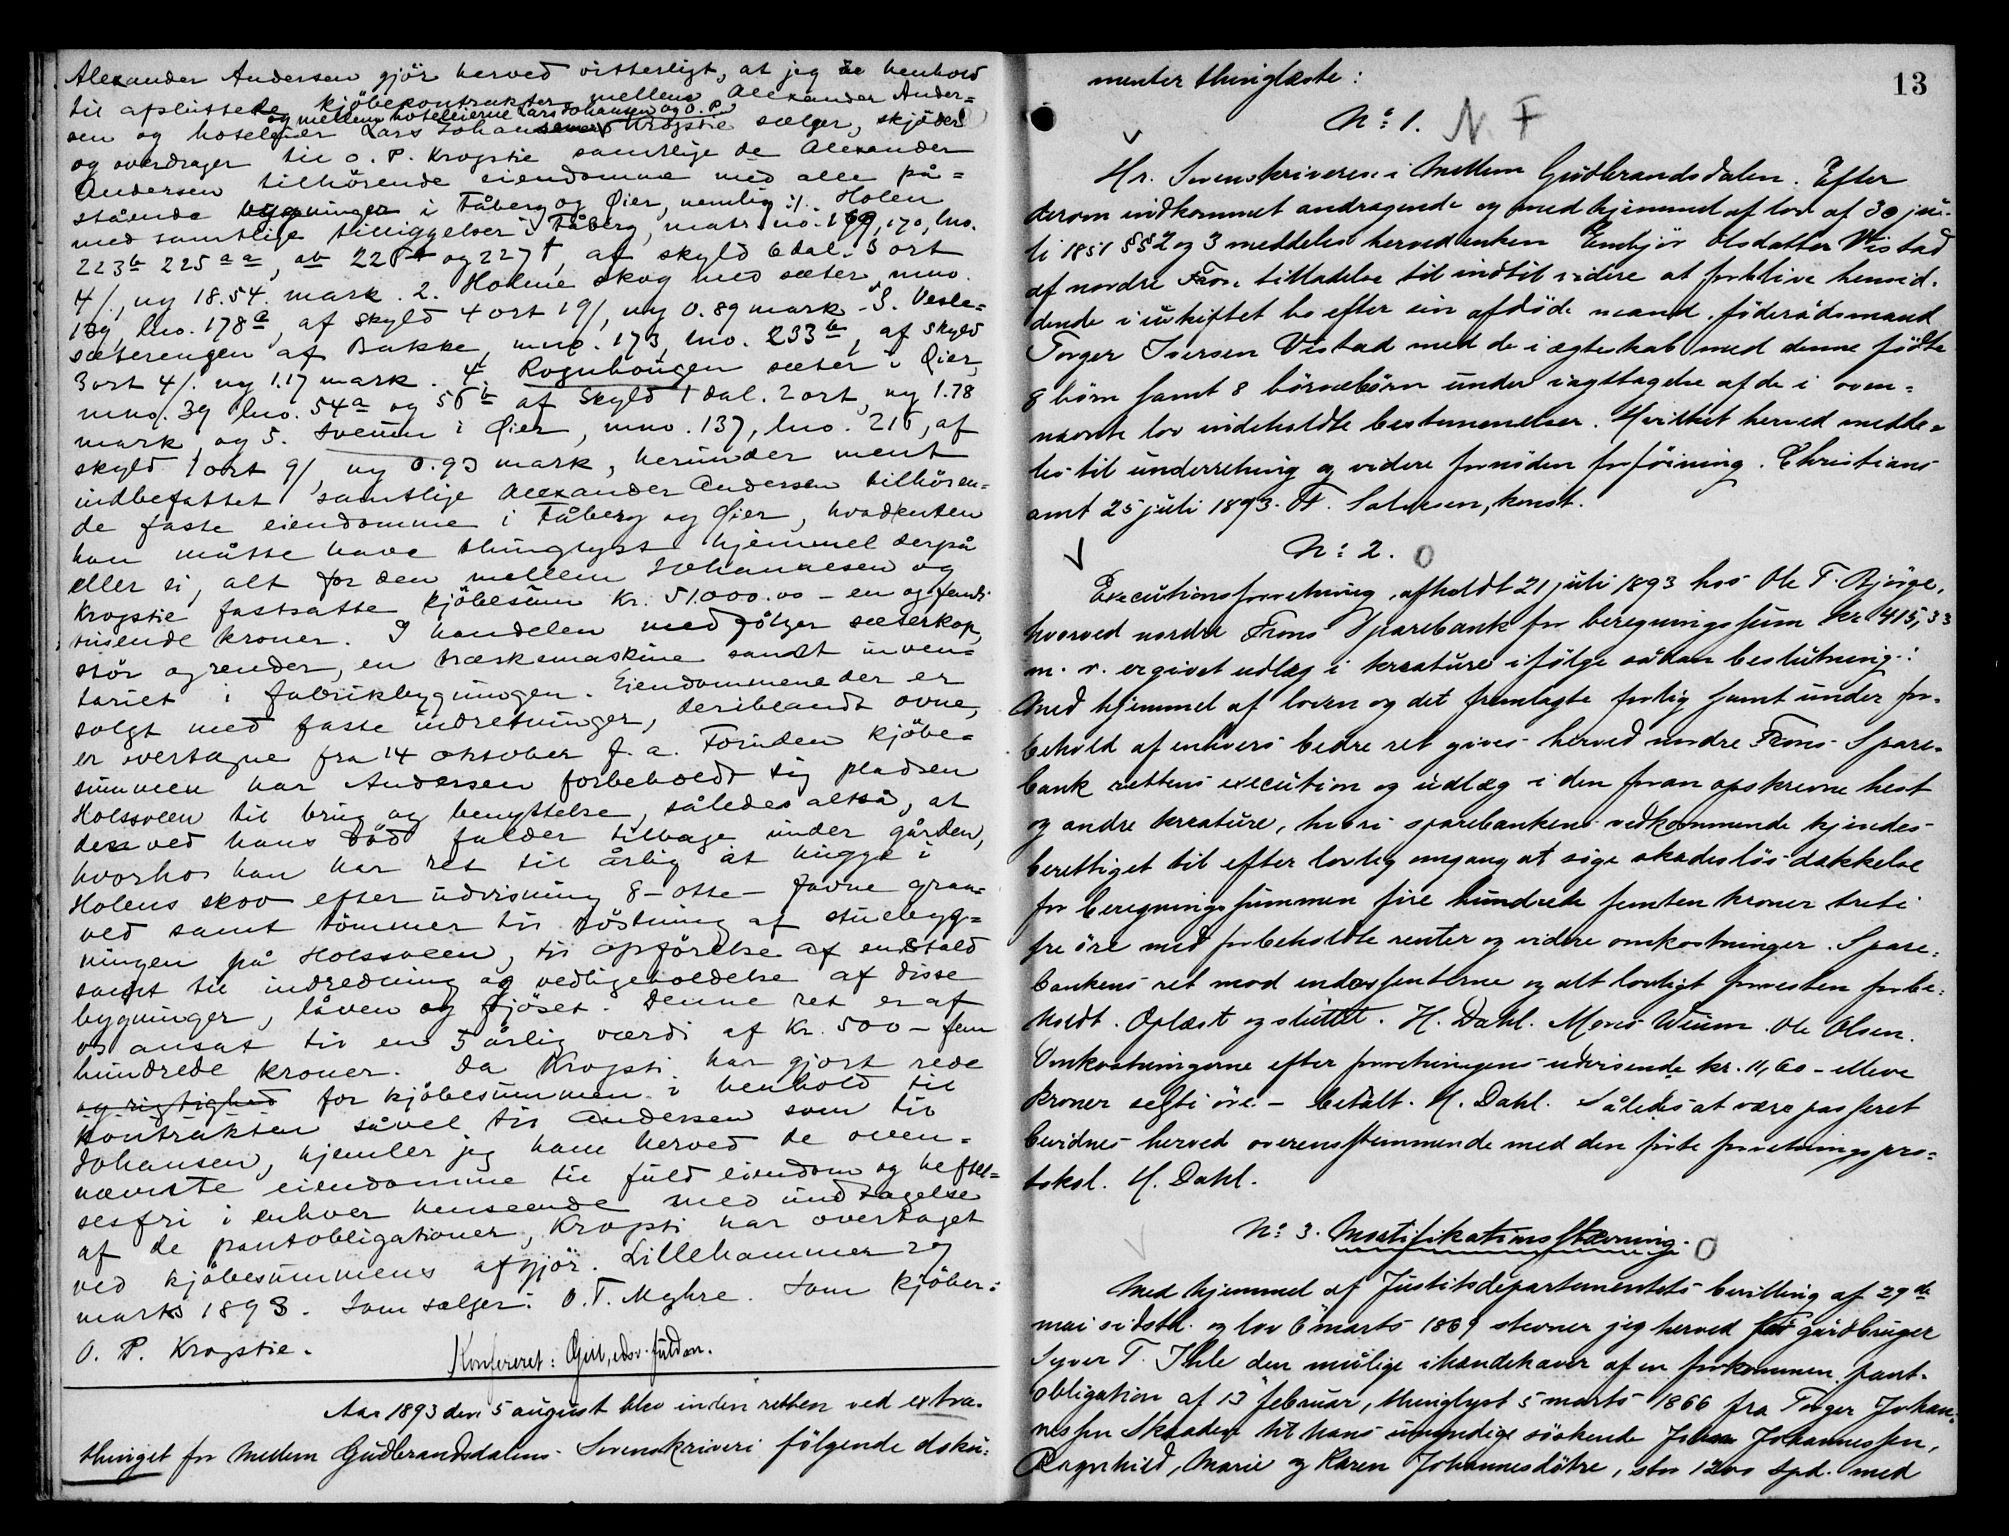 Alexander Andersen gjör herved vitterligt, at jeg i henhold
til afsluttede kjöbekontrakter mellem Alexander Ander=
og mellem hoteleierne Lars Johansen og O. P.
sen og hoteleier Lars Johansen Krogstie sælger, skjöder
og overdrager til O. P. Krogstie samtlige de Alexander
Andersen tilhörende eiendomme med alle på=
stående bygninger i Fåberg og Öier, nemlig: 1. Holen
med samtlige tilliggelser i Fåberg, matr. no. 169, 170, lno.
223b 225aa, ab 226 og 227, af skyld 6 dal. 3 ort
4/, ny 18.54. mark. 2. Holme skog med sæter, mno.
139, lno. 178a, af skyld 4 ort 19/, ny 0.89 mark. 3. Vesle=
sæterengen af Bakke, mno. 173, lno. 233b, af skyld
3 ort 4/. ny 1.17 mark. 4. Rognhougen sæter i Öier,
mno. 39 lno. 54a og 56b af skyld 1 dal. 2 ort, ny 1.78
mark og 5. Sveum i Öier, mno. 137, lno. 216, af
skyld 1 ort 9/, ny 0.93 mark, herunder ment
indbefattet samtlige Alexander Andersen tilhören=
de faste eiendomme i Fåberg og Öier, hvadenten
han måtte have thinglyst hjemmel derpå
eller ei, alt for den mellem Johannesen og
Krogstie fastsatte kjöbesum Kr. 51.000.00 - en og femti
tusende kroner. I handelen medfölger sæterkop,
stör og render, en træskemaskine samt inven=
tariet i fabrikbygningen. Eiendommene der er
solgt med faste indretninger, deriblandt ovne,
er overtagne fra 14 oktober f. a. Foruden kjöbe=
summen har Andersen forbeholdt sig pladsen
Holssveen til brug og benyttelse, således altså, at
den ved hans död falder tilbage under gården,
hvorhos han har ret til årlig at hugge i
Holens skov efter udvisning 8 - otte - favne gran=
ved samt tömmer til böstning af stuebyg=
ningen på Holssveen, til opförelse af en stald
samt til indredning og vedligeholdelse af disse
bygninger, låven og fjöset. Denne ret er af
os ansat til en 5 årlig værdi af Kr. 500 - fem
hundrede kroner. Da Krogsti har gjort rede
og rigtighed for kjöbesummen i henhold til
kontrakten såvel til Andersen som til
Johansen, hjemler jeg ham herved de oven=
nævnte eiendomme til fuld eiendom og heftel=
sesfri i enhver henseende med undtagelse
af de pantobligationer, Krogsti har overtaget
ved kjöbesummens afgjör. Lillehammer 29
marts 1893. Som sælger: O. T. Myhre. Som kjöber:
O. P. Krogstie.
Konfereret:
Aar 1893 den 5 august blev inden retten ved extra.
thinget for Mellem Gudbrandsdalens Sorenskriveri fölgende doku=
13
menter thinglæste:
No: 1. N. F
Hr. Sorenskriveren i Mellem Gudbrandsdalen. Efter
derom indkommet andragende og med hjemmel af lov af 30 ju=
li 1851 §§ 2 og 3 meddeles herved enken Embjör Olsdatter Vistad
af nordre Fron tilladelse til indtil videre at forblive hensid.
dende i uskiftet bo efter sin afdöde mand. föderådsmand
Torger Iversen Vistad med de i ægteskab med denne födte
8 börn samt 8 börnebörn under iagttagelse af de i oven=
nævnte lov indeholdte bestemmelser. Hvilket herved medde=
les til underretning og videre fornöden forföining. Christians
amt 25 juli 1893. konst.
No: 2. O
Executionsforretning, afholdt 21 juli 1893 hos Ole T. Björge,
hvorved nordre Frons Sparebank for beregningssum kr. 415,33
m. v. er givet udlæg i kreature ifölge sådan beslutning:
Med hjemmel af loven og det fremlagte forlig samt under for=
behold af enhvers bedre ret gives herved nordre Frons Spare=
bank rettens execution og udlæg i den foran opskrevne hest
og andre kreature, hvori sparebankens vedkommende kjendes
berettiget til efter lovlig omgang at söge skadeslös dækkelse
for beregningssummen fire hundrede femten kroner treti
tre öre med forbeholdte renter og videre omkostninger. Spare=
bankens ret mod endossenterne og alt lovligt forresten forbe=
holdt. Oplæst og sluttet. H. Dahl. Mons Wium. Ole Olsen.
Omkostningerne efter forretningens udvisende kr. 11,60 - elleve
kroner seksti öre - betalt. H. Dahl. Således at være passeret
bevidnes herved overensstemmende med den förte forretningspro=
tokol. H. Dahl.
No: 3. Mortifikationsstævning. O
Med hjemmel af Justitsdepartementets bevilling af 29de
mai sidstl. og lov 6 marts 1869 stevner jeg herved for gårdbruger
Syver T. Ihle den mulige ihændehaver af en forkommen pant=
obligation af 13 februar, thinglyst 5 marts 1866 fra Torger Johan=
nessen Skaaden til hans umyndige söskende Johan Johannessen,
Ragnhild, Marie og Karen Johannesdötre, stor 1200 spd. med